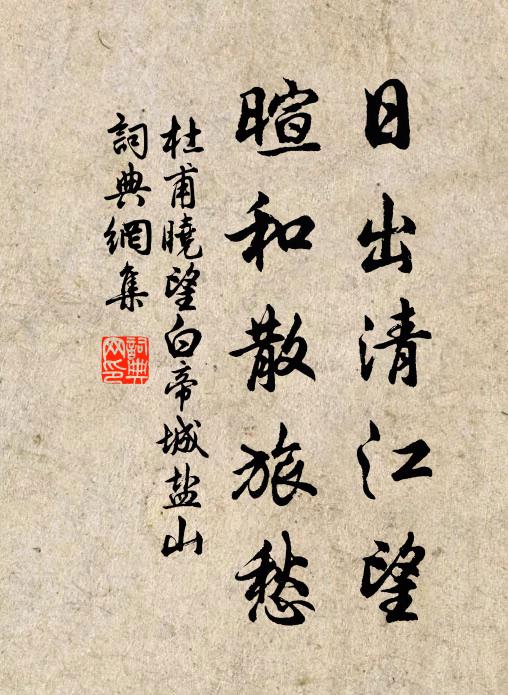 日出清江望
暄和散旅愁
杜甫曉望白帝城盐山
詞典網集
詞典网印